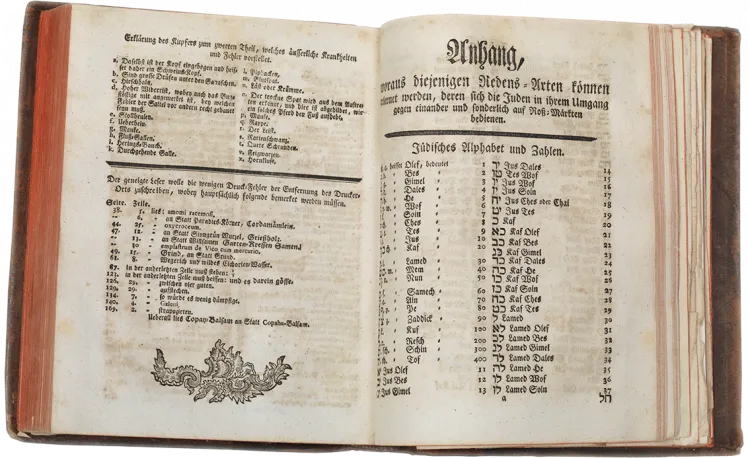 Erklärung des Kupfers zum zweeten Theil, welches äusserliche Krankheiten
und Fehler vorstellet.
a. Daselbst ist der Kopf eingebogen und heis-
set daher ein Schweins-Kopf.
b. Sind große Drüsen unter den Garaschen.
c. Hirschhals.
d. Hoher Widerrist, wobey auch das Gurt
e. Stollbeulen.
f. Ueberbein.
g. Mauke.
h. Fluß-Gallen.
i. Herings-Bauch.
k. Durchgehende Galle.
l. Pipbacken.
m. Plusfoat.
n. Läst oder Krämme.
o. Der trockne Spat wird aus dem Aufrei-
ein solches Pferd den Fuß aufhebt.
p. Mauke.
q. Rappe.
r. Der Leist.
s. Rattenschwanz.
t. Quere Schrunden.
v. Feigwarzen.
x. Hornkluft.
Der geneigte Leser wolle die wenigen Druck-Fehler der Entfernung des Drucker-
Orts zuschreiben, wobey hauptsächlich folgende bemerket werden müssen.
Seite. Zeile.
38. 1. lies: amomi racemosi.
- 4. an Statt Paradies-Körner, Cardamömlein.
44. 25. oxycroceum.
47. 12. an Statt Sinngrün Wurzel, Griesholz.
- 13. an Statt Wittsamen Garten-Kressen Samen.
- 30 emplastrum de Vico cum mercurio.
49. 15. Grind, an Statt Grund.
63. 8. Wegerich und wildes Cichorien-Wasser.
87. in der anderletzten Zeile muß stehen:
123. in der anderletzten Zeile muß heissen: und es darein gösse.
126. 29. zwischen vier guten.
129. 29. aufstechen.
134. 7. so würde es wenig dämpfige.
140. 4. Galoni.
169. 2. strapazirten.
Ueberall lies Copay-Balsam an Statt Copahu-Balsam.
Anhang,
woraus diejenigen Redens-Arten können
erlernet werden, deren sich die Juden in ihrem Umgang
gegen einander und sonderlich auf Roß-Märkten
bedienen.
Jüdisches Alphabet und Zahlen.
heisset Olef, bedeutet 1 יד Jus Dales 14
Bes 2 טו Tes Wof 15
Gimel 3 יו Jus Wof 16
Dales 4 יז Jus Soin 17
He 5 יח Jus Ches oder Chai 18
Wof 6 יט Jus Tes 19
Soin 7 כ Kaf 20
Ches 8 כא Kaf Olef 21
Tes 9 כב Kaf Bes 22
Jus 10 כג Kaf Gimel 23
Kaf 20 כד Kaf Dales 24
Lamed 30 כה Kaf He 25
Mem 40 כו Kaf Wof 26
Nun 50 כז Kaf Soin 27
Samech 60 כח Kaf Ches 28
Ain 70 כט Kaf Tes 29
Pe 80 ל Lamed 30
Zaddick 90 לא Lamed Olef 31
Kuf 100 לב Lamed Bes 32
Resch 200 לג Lamed Gimel 33
Schin 300 לד Lamed Dales 34
Tof 400 לה Lamed He 35
Jus Olef 11 לו Lamed Wof 36
Jus Bes 12 לז Lamed Soin 37
Jus Gimel 13
a